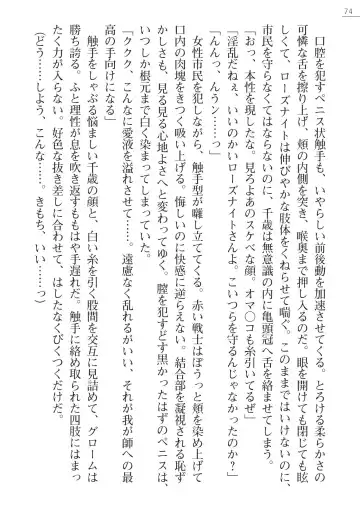 74
口腔を犯すペニス状触手も、いやらしい前後動を加速させてくる。とろける柔らかさの
可憐な舌を擦り上げ、頬の内側を突き、喉奥まで押し入るのだ。眼を開けても閉じても眩
しくて、ローズナイトは伸びやかな肢体をくねらせて喘ぐ。このままではいけないのに、
市民を守らなくてはならないのに、千歳は無意識の内に亀頭冠へ舌を絡ませてしまう。
「おっ、本性を現したな。見ろよあのスケベな顔。オマ〇コも糸引いてるぜ」
「淫乱だねぇ、いいのかいローズナイトさんよ。こいつらを守るんじゃなかったのか？」
「んんっ、んんゥン……っ」
女性市民を犯しながら、触手型が囃し立ててくる。赤い戦士はぼうっと頬を染め上げて
口内の肉塊を吸い上げてしまう。悔しいのに快感に逆らえない。結合部を凝視される恥ず
かしさも、見る見る心地よさへと変わってゆく。膣を犯すどす黒かったはずのペニスは、
いつしか根元まで白く染まってしまっていた。
「ククク、こんなに愛液を溢れさせて……。遠慮なく乱れるがいい、それが我が師への最
高の手向けになる」
触手をしゃぶる悩ましい千歳の顔と、白い糸を引く股間を交互に見詰めて、グロームは
勝ち誇る。ふと理性が息を吹き返すももはや手遅れだ。触手に絡められた四肢にはまっ
たく力が入らない。好色な抜き差しに合わせて、はしたなくびくつくだけだ。
（どう……しよう、こんな……。きもち、いい……っ）